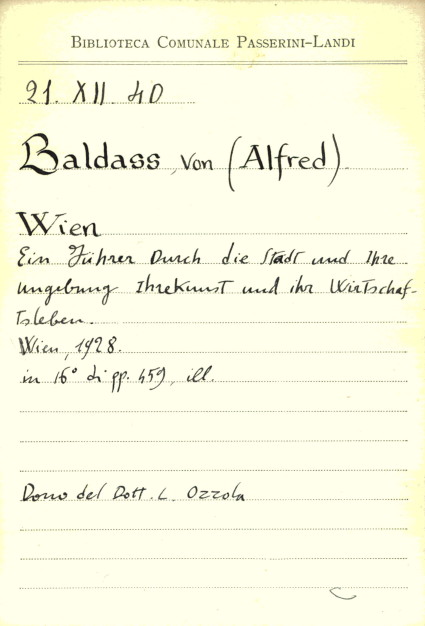 BIBLIOTECA COMUNALE PASSERINI-LANDI
21. XII. 40
Baldass, von (Alfred)
Wien
Ein Führer Durch die Stadt und Ihre
umgebung Ihrekunst und ihr Wirtschaf-
tsleben.
Wien, 1928.
in 16° di pp. 459, ill.
Dono del Dott. L. Ozzola